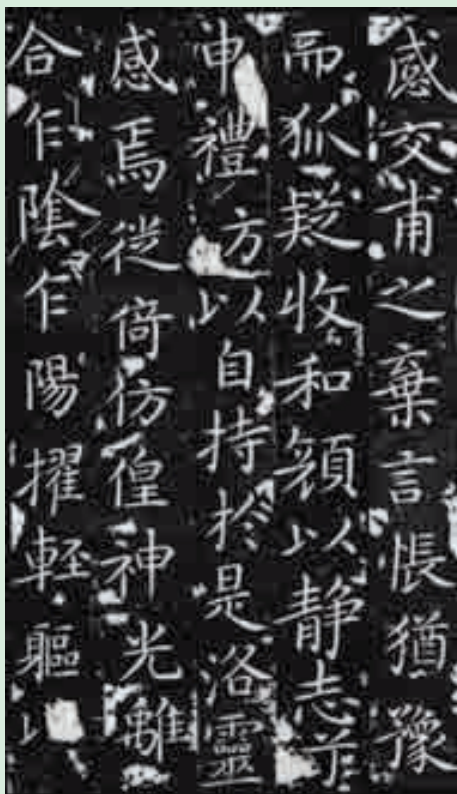 感交甫之棄言悵猶豫
而狐疑收和顔以静志兮
申禮防以自持於是洛靈
感焉徙倚仿偟神光離
合乍陰乍陽擢輕軀以